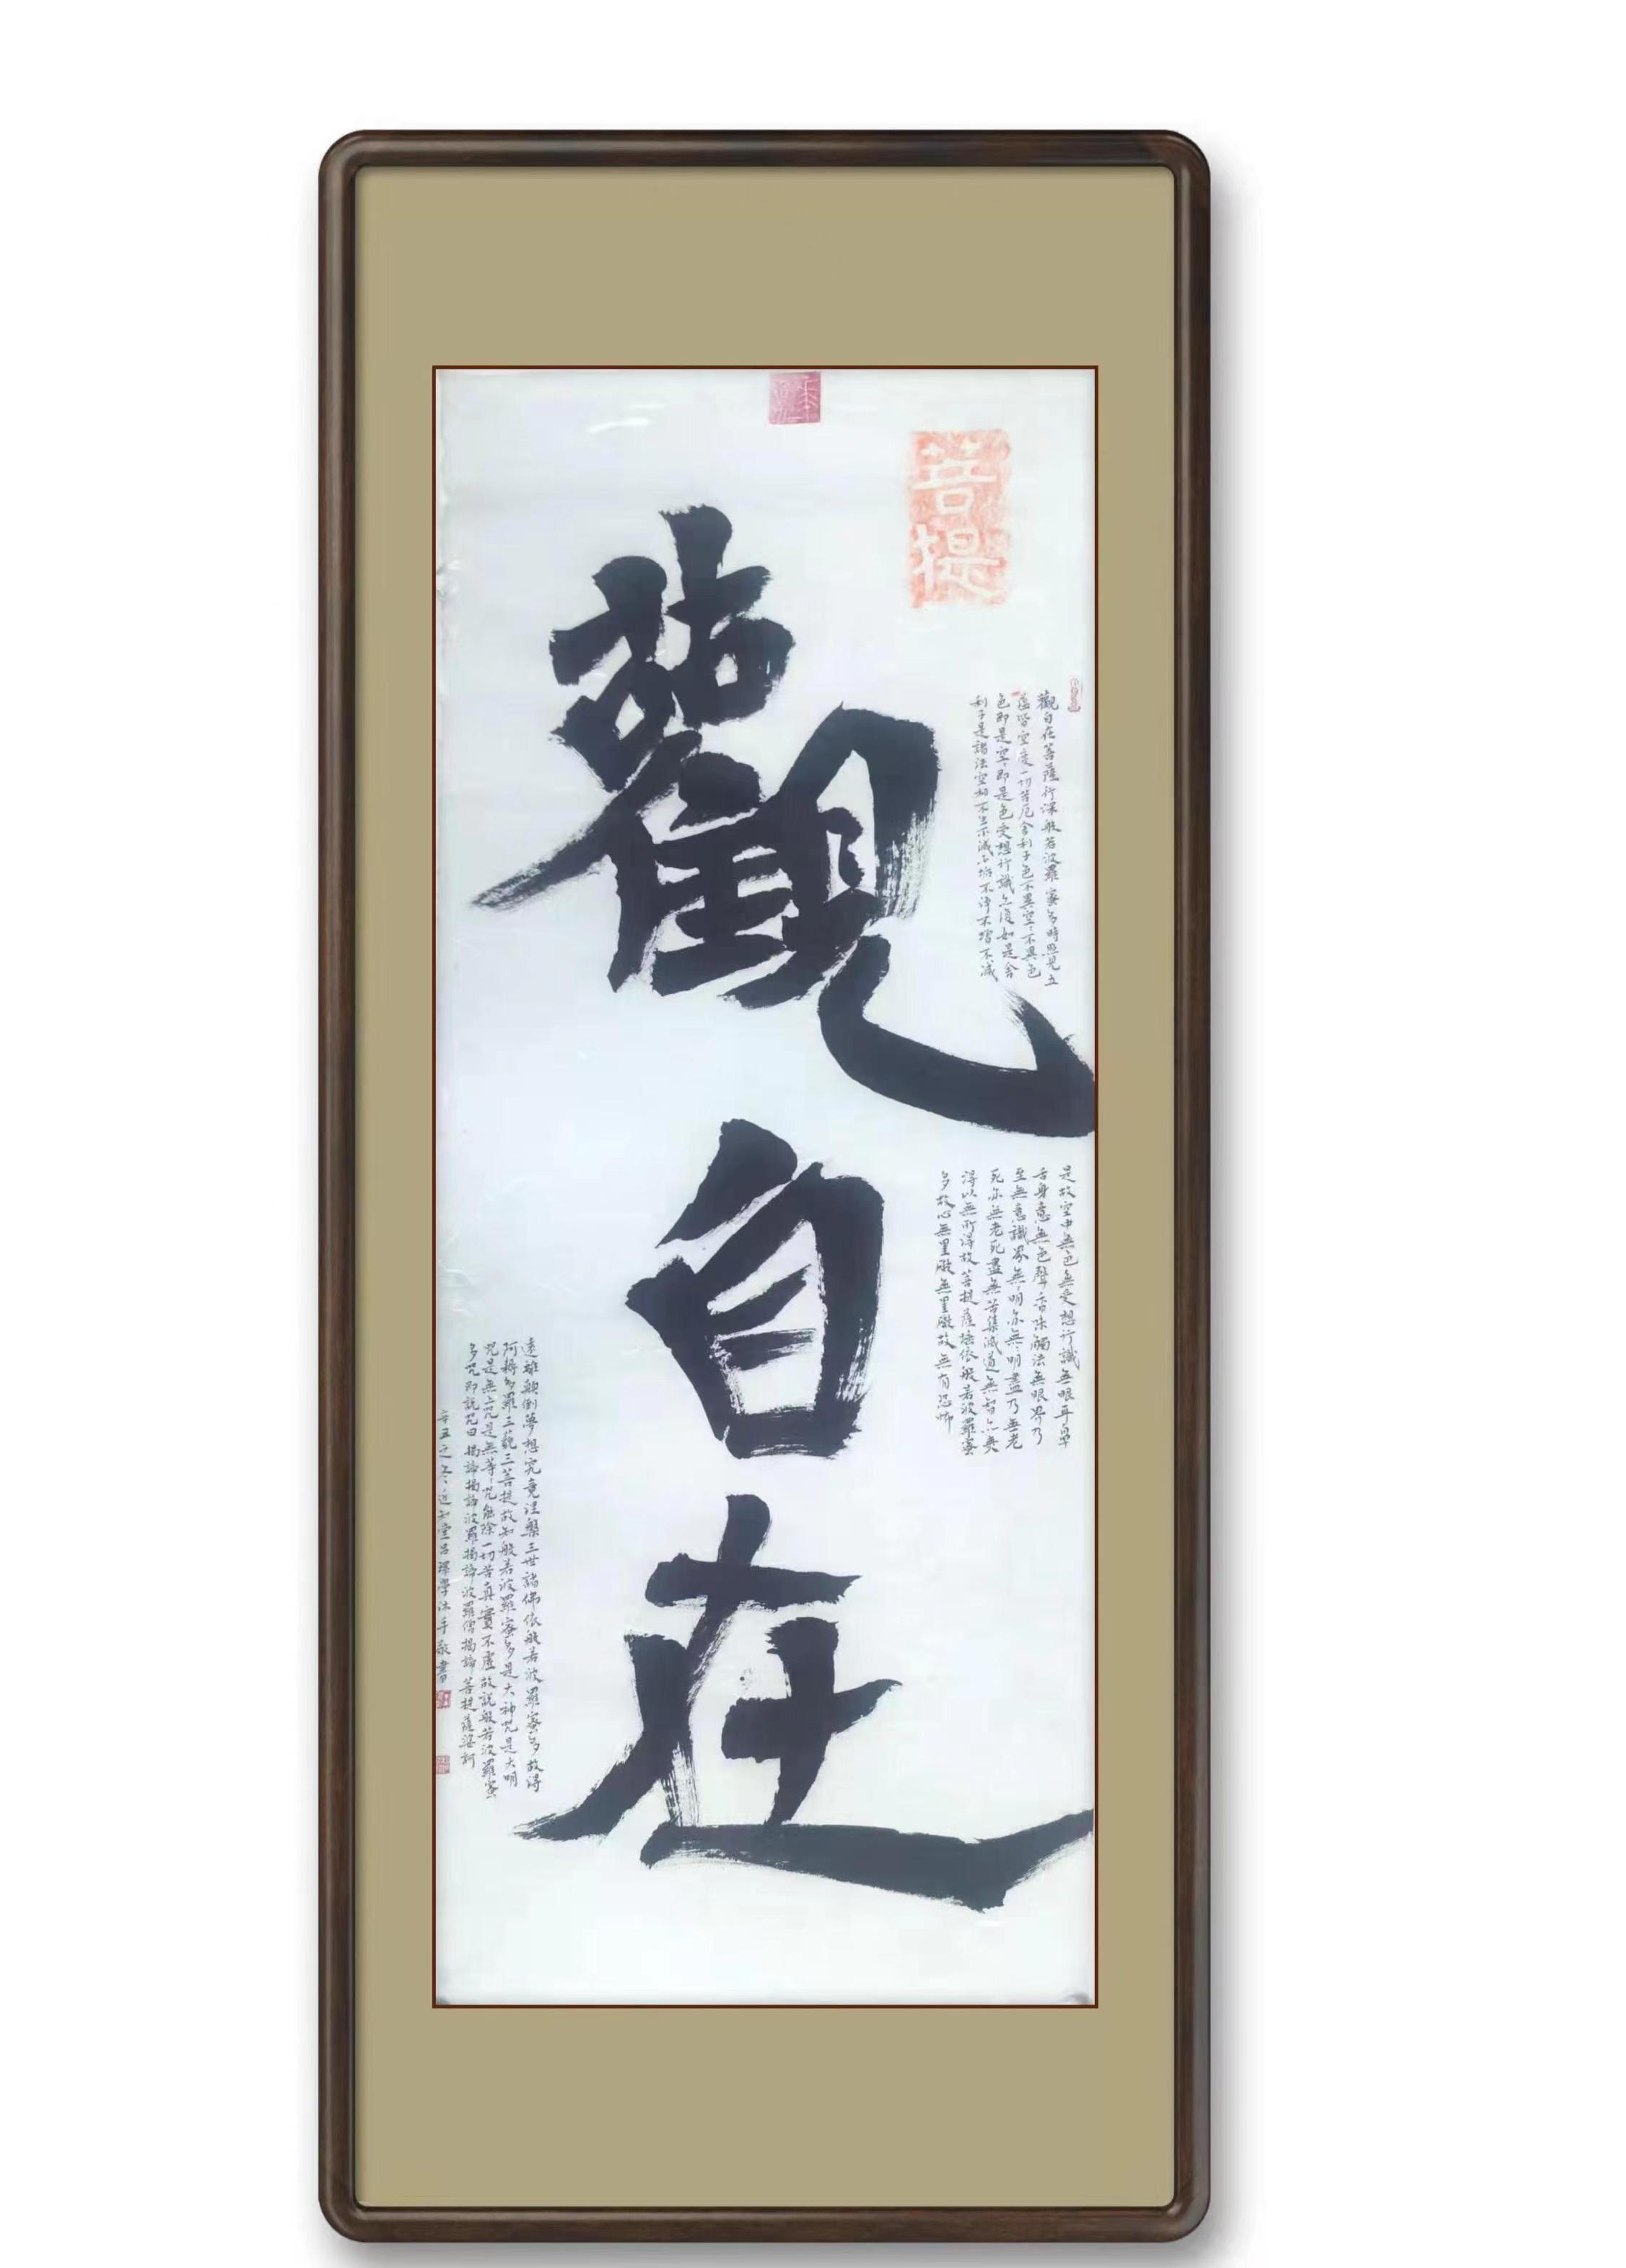 菩提
觀自在
觀自在菩薩行深般若波羅蜜多時照見五
蘊皆空度一切苦厄舍利子色不異空々不異色
色即是空々即是色受想行識亦復如是舍
利子是諸法空相不生不滅不垢不淨不增不減
是故空中無色無受想行識無眼耳鼻
舌身意無色聲香味觸法無眼界乃
至無意識界無無明亦無無明盡乃至無老
死亦無老死盡無苦集滅道無智亦無
得以無所得故菩提薩埵依般若波羅蜜
多故心無罣礙無罣礙故無有恐怖
遠離顛倒夢想究竟涅槃三世諸佛依般若波羅蜜多故得
阿耨多羅三藐三菩提故知般若波羅蜜多是大神咒是大明
咒是無上咒是無等々咒能除一切苦真實不虛故說般若波羅蜜
多咒即說咒曰揭諦揭諦波羅揭諦波羅僧揭諦菩提薩婆訶
辛丑之冬近知堂呂學沐手敬書